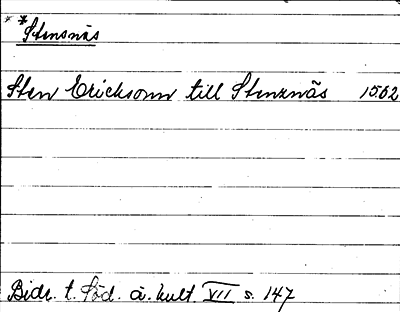 * *Stensnäs
Sten Ericksonn till Stenznäs 1502
Bidr. t. Söd. ä. kult VII s. 147